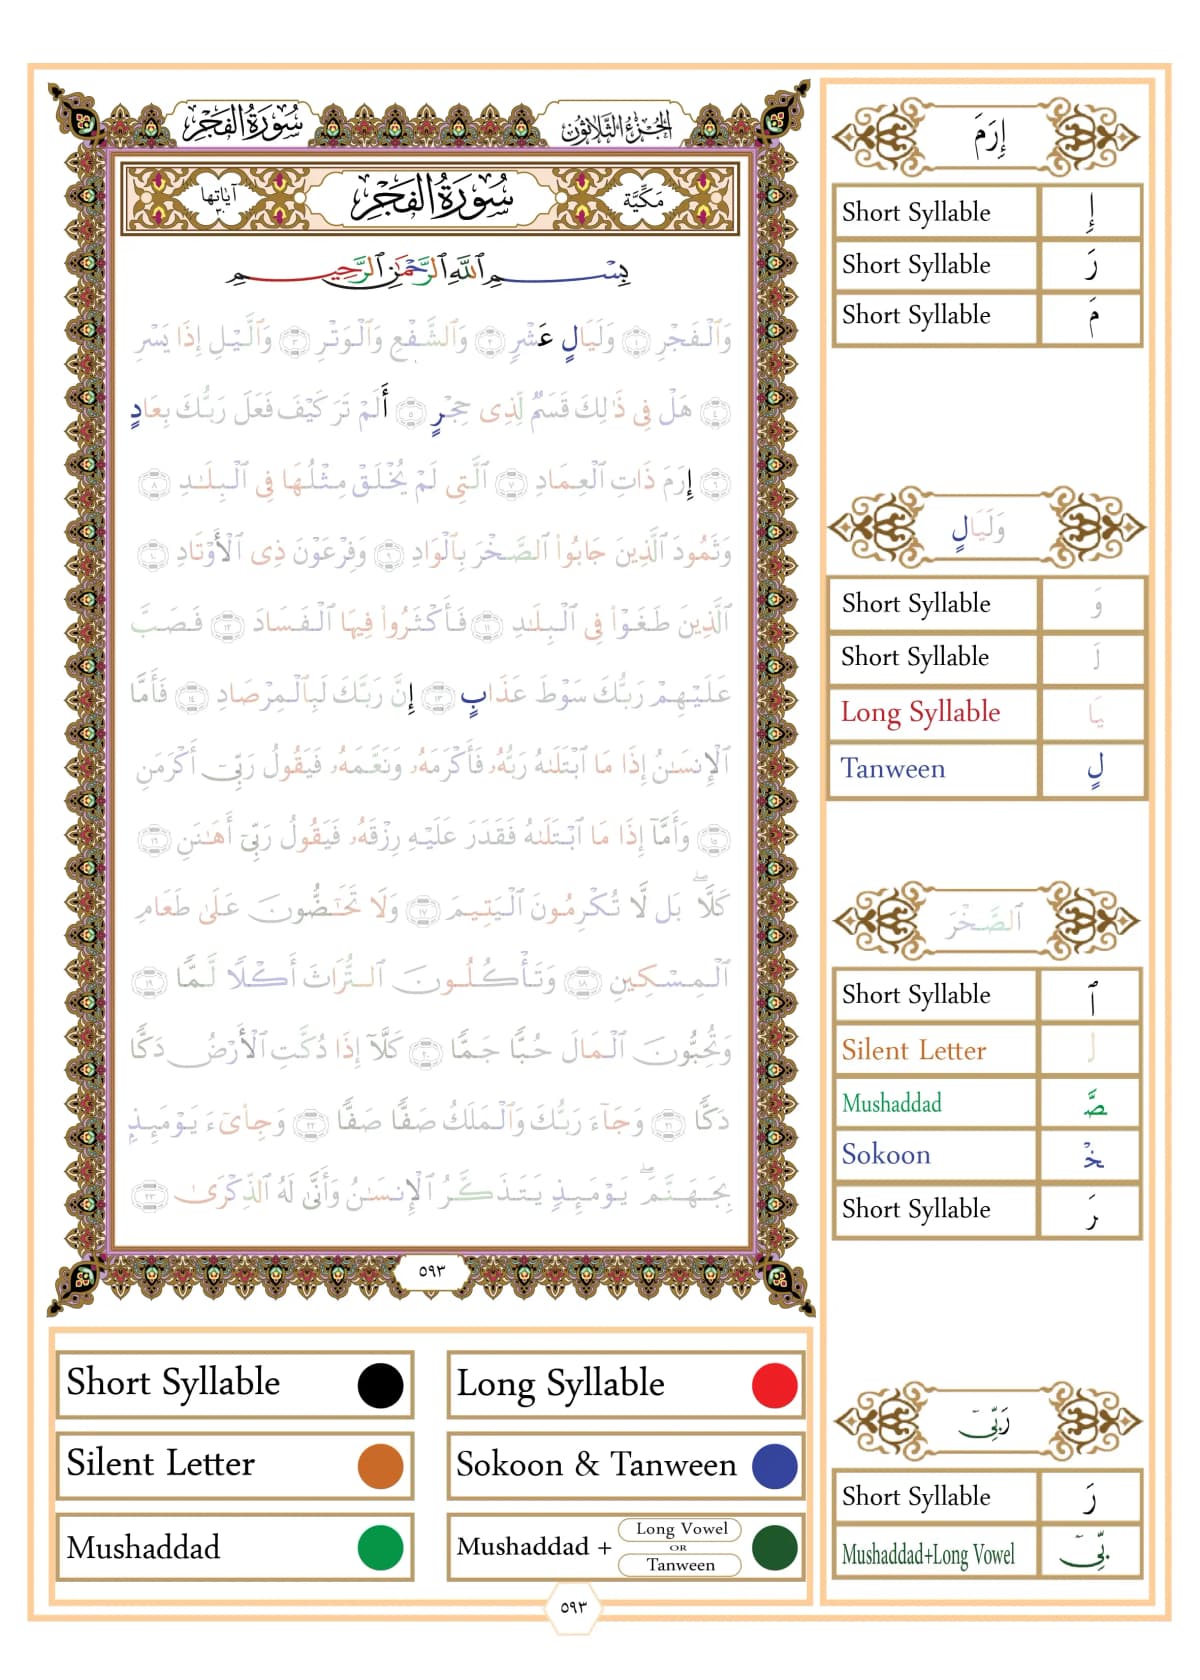 سُورَةُ الفَجْرِ
الجُزْءُ الثَّلَاثُونَ
مَكِّيَّة
سُورَةُ الفَجْرِ
آيَاتُهَا ٣٠
بِسْمِ ٱللَّهِ ٱلرَّحْمَٰنِ ٱلرَّحِيمِ
وَٱلْفَجْرِ ١ وَلَيَالٍ عَشْرٍ ٢ وَٱلشَّفْعِ وَٱلْوَتْرِ ٣ وَٱلَّيْلِ إِذَا يَسْرِ
٤ هَلْ فِى ذَٰلِكَ قَسَمٌ لِّذِى حِجْرٍ ٥ أَلَمْ تَرَ كَيْفَ فَعَلَ رَبُّكَ بِعَادٍ
٦ إِرَمَ ذَاتِ ٱلْعِمَادِ ٧ ٱلَّتِى لَمْ يُخْلَقْ مِثْلُهَا فِى ٱلْبِلَٰدِ ٨
وَثَمُودَ ٱلَّذِينَ جَابُوا۟ ٱلصَّخْرَ بِٱلْوَادِ ٩ وَفِرْعَوْنَ ذِى ٱلْأَوْتَادِ ١٠
ٱلَّذِينَ طَغَوْا۟ فِى ٱلْبِلَٰدِ ١١ فَأَكْثَرُوا۟ فِيهَا ٱلْفَسَادَ ١٢ فَصَبَّ
عَلَيْهِمْ رَبُّكَ سَوْطَ عَذَابٍ ١٣ إِنَّ رَبَّكَ لَبِٱلْمِرْصَادِ ١٤ فَأَمَّا
ٱلْإِنسَٰنُ إِذَا مَا ٱبْتَلَىٰهُ رَبُّهُۥ فَأَكْرَمَهُۥ وَنَعَّمَهُۥ فَيَقُولُ رَبِّىٓ أَكْرَمَنِ
١٥ وَأَمَّآ إِذَا مَا ٱبْتَلَىٰهُ فَقَدَرَ عَلَيْهِ رِزْقَهُۥ فَيَقُولُ رَبِّىٓ أَهَٰنَنِ ١٦
كَلَّا ۖ بَل لَّا تُكْرِمُونَ ٱلْيَتِيمَ ١٧ وَلَا تَحَٰٓضُّونَ عَلَىٰ طَعَامِ
ٱلْمِسْكِينِ ١٨ وَتَأْكُلُونَ ٱلتُّرَاثَ أَكْلًا لَّمًّا ١٩
وَتُحِبُّونَ ٱلْمَالَ حُبًّا جَمًّا ٢٠ كَلَّآ إِذَا دُكَّتِ ٱلْأَرْضُ دَكًّا
دَكًّا ٢١ وَجَآءَ رَبُّكَ وَٱلْمَلَكُ صَفًّا صَفًّا ٢٢ وَجِا۟ىٓءَ يَوْمَئِذٍۭ
بِجَهَنَّمَ ۚ يَوْمَئِذٍ يَتَذَكَّرُ ٱلْإِنسَٰنُ وَأَنَّىٰ لَهُ ٱلذِّكْرَىٰ ٢٣
٥٩٣
إِرَمَ
Short Syllable إِ
Short Syllable رَ
Short Syllable مَ
وَلَيَالٍ
Short Syllable وَ
Short Syllable لَ
Long Syllable يَا
Tanween لٍ
ٱلصَّخْرَ
Short Syllable ٱ
Silent Letter ل
Mushaddad صَّ
Sokoon خْ
Short Syllable رَ
رَبِّىٓ
Short Syllable رَ
Mushaddad+Long Vowel بِّىٓ
Short Syllable
Long Syllable
Silent Letter
Sokoon & Tanween
Mushaddad
Mushaddad + Long Vowel OR Tanween
٥٩٣